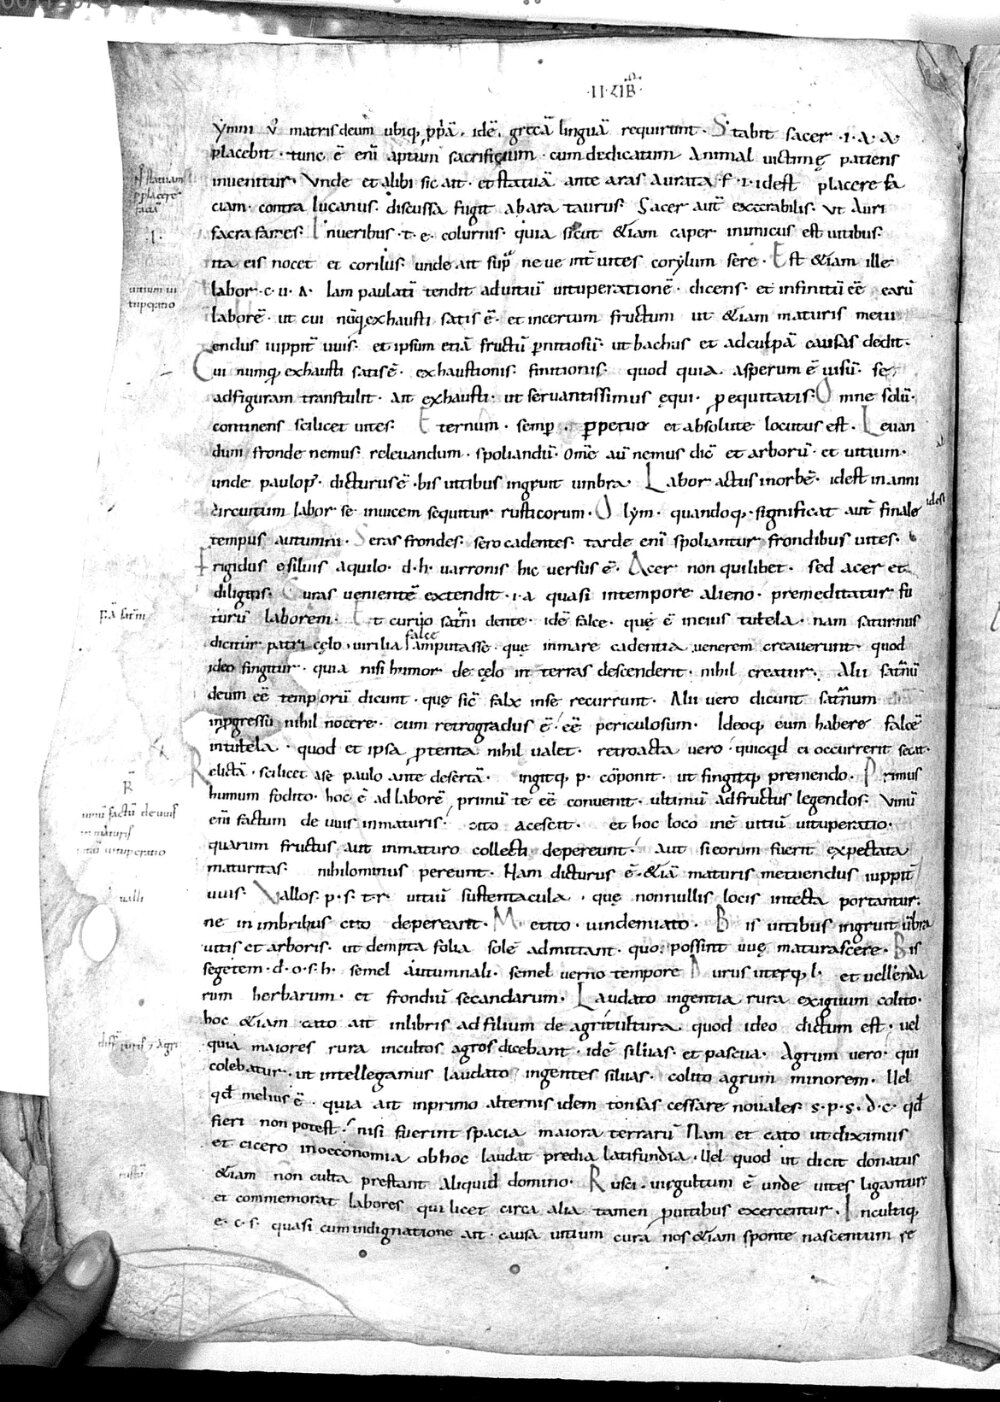 ·II·LIB̄·
ẏmni v̊ matris deum ubiq; ꝓp̄a . idē . grecā linguā requirunt · Stabit sacer · i · a · a
placebit · tunc ē enī aptum sacrificium · cum dedicatum Animal uictimę patiens
inuenitur · Vnde et alibi sic ait · et statuā ante aras Aurata f · i · idest placere fa
ciam · contra lucanus · discussa fugit ab ara taurus · Sacer aut̄ execrabilis · Vt Auri
sacra fames · Inueribus · t · e · colurnis · quia sicut &iam caper inimicus est uitibus ·
ita eis nocet et corilus · unde ait sup̄ neue int̄ uites corylum sere · Est &iam ille
labor · c · u · A · Iam paulatī tendit ad uitiū uituperationē · dicens · et infinitū eē earū
laborē · ut cui nūq; exhausti satis ē · et incertum fructum ut &iam maturis metu
endus iuppit̄ uuis · et ipsum etiā fructū ꝑnitiosū · ut bachus et ad culpā causas dedit ·
Cui numq; exhausti satis ē · exhaustionis · finitionis · quod quia asperum ē uisū · se
ad figuram transtulit · Ait exhausti · ut seruantissimus ęqui · ꝓ equitatis · Omne solū ·
continens scilicet uites · Eternum · semp̄ · perpetuo et absolute locutus est · Leuan
dum fronde nemus · releuandum · spoliandū · Omē aū nemus dic̄ et arborū · et uitium ·
unde paulop̄ · dicturus ē · bis uitibus ingruit umbra · Labor actus in orbē · idest in anni
circuitum labor se inuicem sequitur rusticorum · Olym · quandoq; · significat aut̄ finale idest
tempus autumni · Seras frondes · sero cadentes · tarde enī spoliantur frondibus uites ·
Frigidus & siluis aquilo · d · h · uarronis hic uersus ē · Acer non quilibet · sed acer et
diligens · Curas uenientē extendit · i · a quasi in tempore alieno · premeditatur fu
turū laborem · Et curuo sat̄ni dente · idē falce · quę ē in eius tutela · nam saturnus
dicitur patri cęlo · uirilia falce amputasse · quę in mare cadentia uenerem creauerunt · quod
ideo fingitur · quia nisi humor de cęlo in terras descenderit · nihil creatur · Alii sat̄nū
deum eē temporū dicunt · quę sic̄ falx in se recurrunt · Alii uero dicunt sat̄num
in ꝓgressū nihil nocere · cum retrogradus ē · eē periculosum · Ideoq; eum habere falcē
in tutela · quod et ipsa ꝓtenta nihil ualet · retroacta uero · quicq̄d ei occurrerit secat ·
Relictā · scilicet a se paulo ante desertā · ingitq; p · cōponit · ut fingitq; premendo · Primus
humum fodito · hoc ē ad laborē primū te eē conuenit · ultimū ad fructus legendos · Vinū
enī factum de uuis inmaturis · cito acescit · et hoc loco inē uitiū uituperatio ·
quarum fructus aut inmaturo collecti depereunt · aut si eorum fuerit expectata
maturitas · nihilominus pereunt · Nam dicturus ē · &iā maturis metuendus iuppit̄
uuis · Vallos · p · s · t · r · uitiū sustentacula · que nonnullis locis intecta portantur ·
ne in imbribus cito depereant · Metito · uindemiato · Bis uitibus ingruit ūbra
uitis et arboris · ut dempta folia solē admittant · quo possint uuę maturascere · Bis
segetem · d · o · s · h · semel autumnali · semel uerno tempore Durus uterq; l · et uellenda
rum herbarum · et frondiū secandarum · Laudato ingentia rura exiguum colito ·
hoc &iam cato ait in libris ad filium de agricultura quod ideo dictum est · uel
quia maiores rura incultos agros dicebant · idē siluas · et pascua · Agrum uero · qui
colebatur · ut intellegamus laudato ingentes siluas · colito agrum minorem · Vel
qd̄ melius ē · quia ait in primo alternis idem tonsas cessare nouales · s · p · s · d · c · qd̄
fieri non potest · nisi fuerint spacia maiora terrarū Nam et cato ut diximus
et cicero in oeconomia ob hoc laudat predia latifundia · Vel quod ut dicit donatus
&iam non culta prestant aliquid domino · Rusci · uirgultum ē unde uites ligantur
et commemorat labores qui licet circa alia tamen ꝓ uitibus exercentur · Incultiq;
e · c · s · quasi cum indignatione ait · causa uitium cura nos &iam sponte nascentum se
placere
faciā
·I·
uitium ui
tuperatio
uinū factū de uuis
inmaturis
uitiū uituperatio
ualli
diff̄ ruris 7 agri